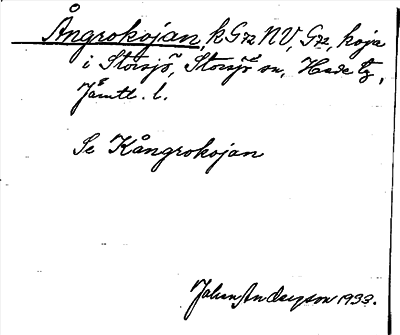 Ångrokojan, k G72 NV, G72, koja
i Storsjö, Storsjö sn, Hede tg,
Jämtl. l.
Se Kångrokojan
Johan Anderson 1933.